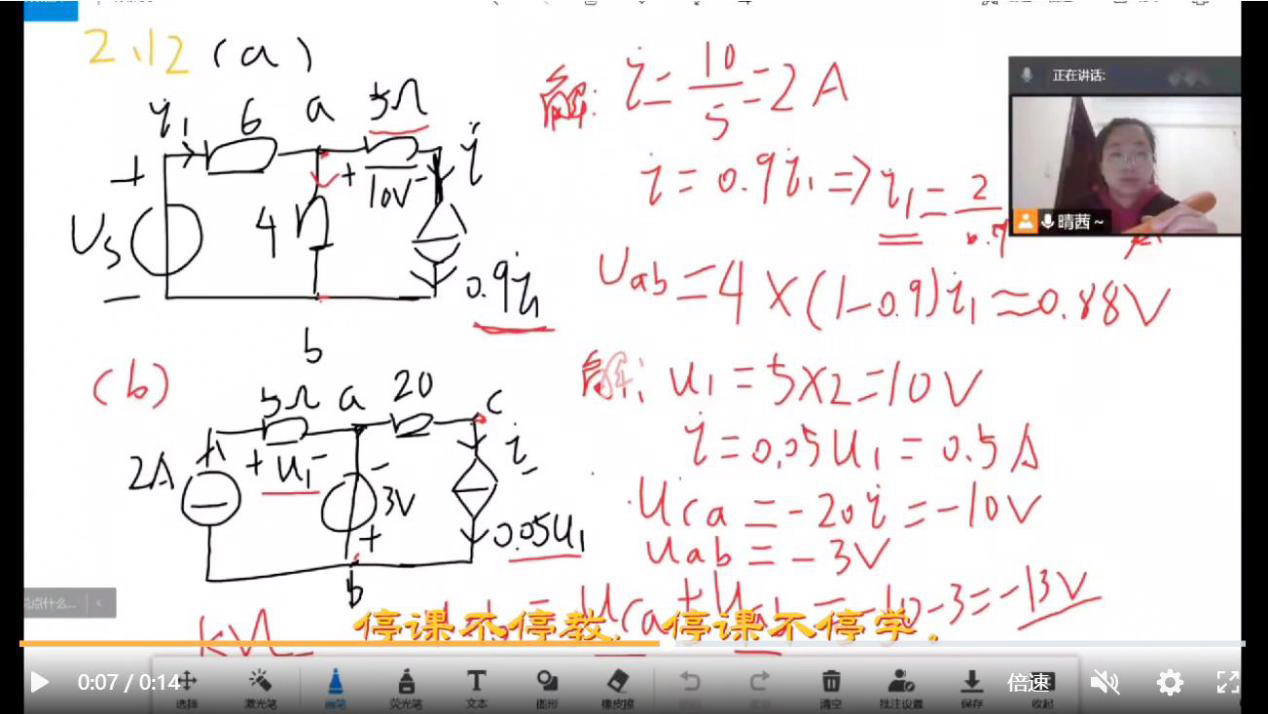 2.12 (a)
i₁ 6 a 5Ω i
+ 10V -
+
Us
-
4
0.9i₁
b
解: i = 10/5 = 2A
i = 0.9i₁ ⇒ i₁ = 2/0.9
Uab = 4 × (1-0.9)i₁ ≈ 0.88V
正在讲话:
晴茜~
(b)
5Ω a 20 c
+ U₁ - i
2A
-
3V
+
0.05U₁
b
解: U₁ = 5×2 = 10V
i = 0.05U₁ = 0.5A
Uca = -20i = -10V
Uab = -3V
= Uca + Uab = -10-3 = -13V
KVL
停课不停教,停课不停学。
0:07 / 0:14
倍速
选择 激光笔 画笔 荧光笔 文本 图形 橡皮擦 清空 批注设置 保存 收起